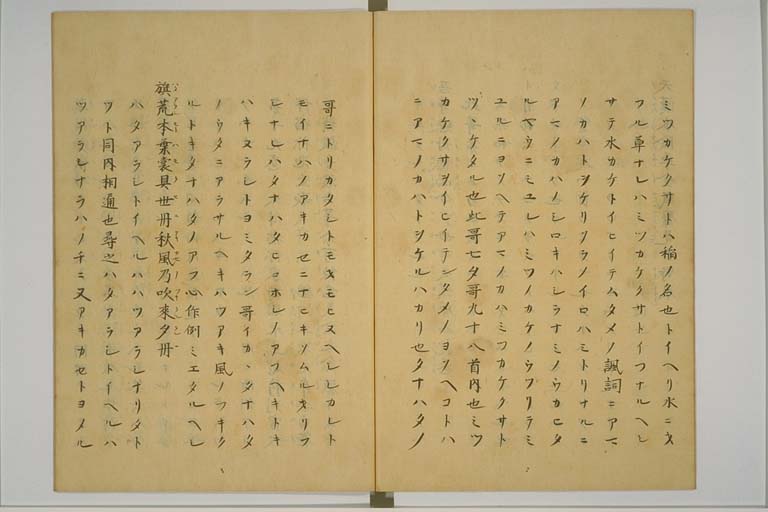 ミツカケクサトハ稲ノ名也トイヘリ水ニタ
フル草ナレハミツカケクサトイフナルヘシ
サテ水カケトイヒイテムタメノ諷詞ニアマ
ノカハトシケリクラノイロハミトリナルニ
アマノカハノシロキハシラナミノウカヒタ
ルヤウニミユレハミツノカケノウツリテミ
ユルニヨソヘテアマノカハミツカケクサト
ツヽケタル也此哥七夕哥九十八首内也ミツ
カケクサヲイヒイテンタメノヨソヘコトハ
ニアマノカハトシケルハカリ也タナハタノ
哥ニトリカタシトモキモヒヌヘシシカレト
モイナハノアキカセニナヒキソムルヲリフ
シナレハタナハタヒコホシノアフヘキトキ
ハキヌラシトヨミタラン哥イカヽタナハタ
ノウタニアラサルヘキハツアキ風ノフキタ
ルトキタナハタノアフ心作例ミエタルヘシ
旗荒本葉裳具世丹秋風乃吹来夕丹
ハタアラシトイヘルハハツアラシナリタト
ツト同内相通也尋之ハタアラシトイヘルハ
ツアラシナラハノチニ又アキカセトヨメル